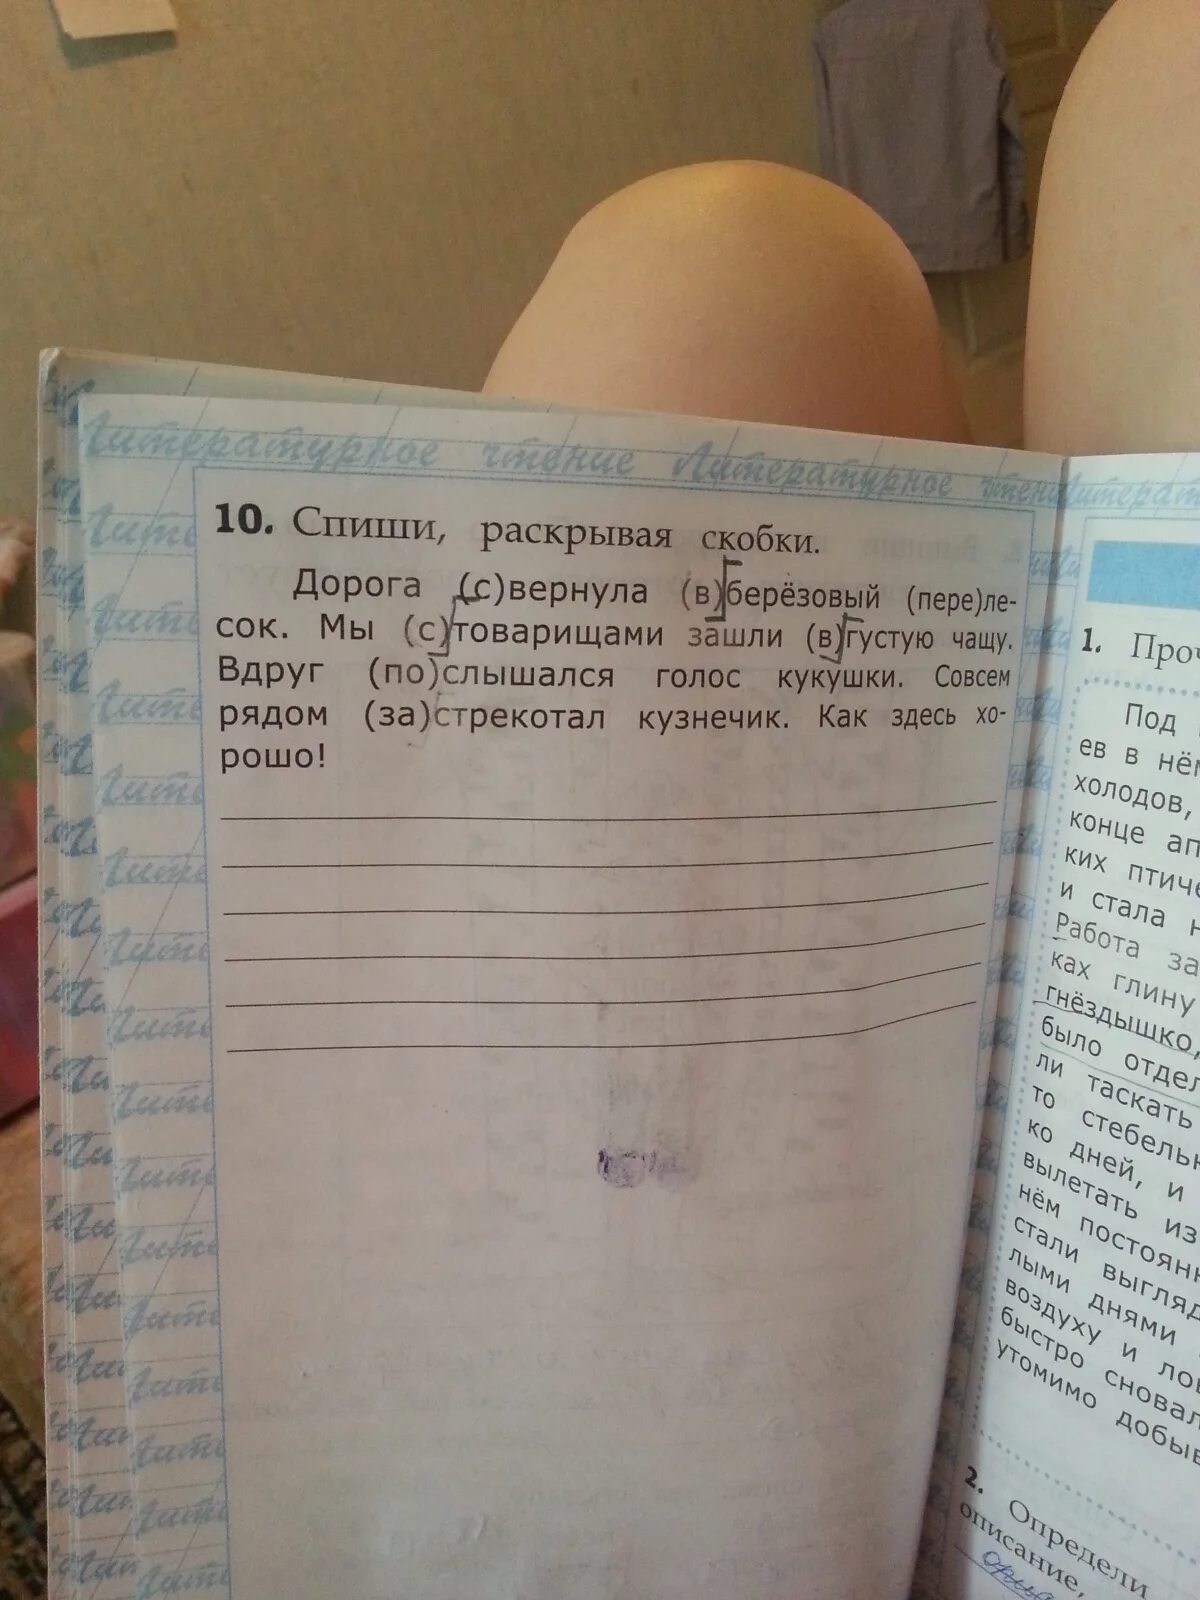 Литературное чтение Литературное чтени
10. Спиши, раскрывая скобки.
Дорога (с)вернула (в)берёзовый (пере)ле-
сок. Мы (с)товарищами зашли (в)густую чащу.
Вдруг (по)слышался голос кукушки. Совсем
рядом (за)стрекотал кузнечик. Как здесь хо-
рошо!
1. Проч
Под
ев в нём
холодов,
конце ап
ких птиче
и стала н
Работа за
ках глину
гнёздышко,
было отдел
ли таскать
то стебельк
ко дней, и
вылетать из
нём постоянн
стали выгляд
лыми днями
воздуху и лов
быстро сновал
утомимо добыв
2. Определи
описание,